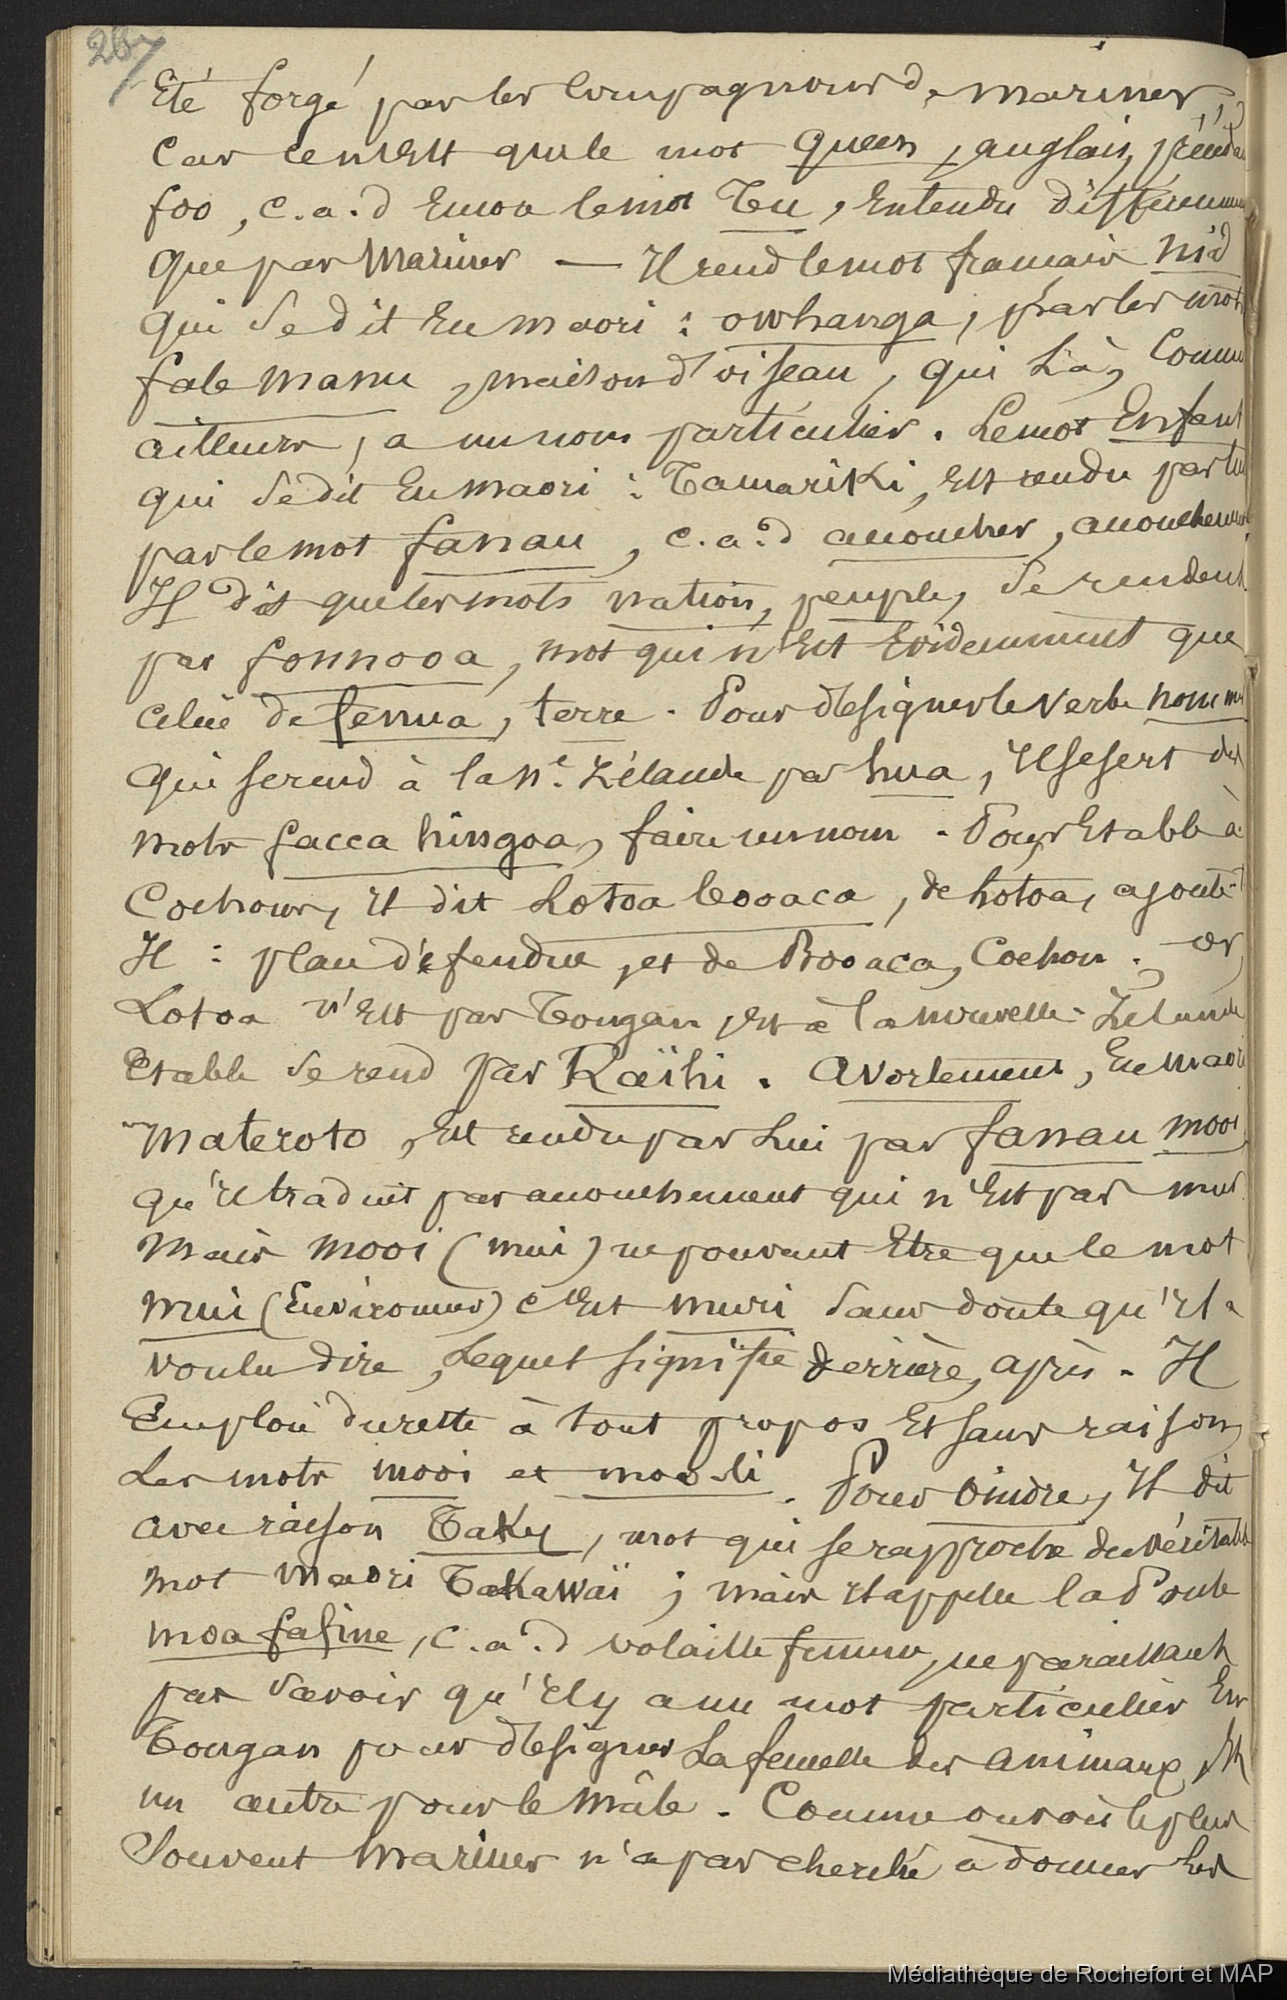 267
Eté forgé par les compagnons de Mariner,
Car ce n'est que le mot queen, anglais, précédé
foo, c.a.d encore le mot Tu, Entendu différemment
que par Mariner — Il rend le mot francais nid
qui se dit En maori : owhanga, par les mots
fale manu, maison d'oiseau, qui là, Comme
ailleurs, a un nom particulier. Le mot Enfant
qui se dit En maori : Tamariki, est rendu par lui
par le mot fanau, c.a.d accoucher, accouchement
Il dit que les mots nation, peuple, se rendent
par fonnooa, mot qui n'Est Evidemment que
celui de fenua, terre. Pour désigner le verbe nommer
Qui se rend à la Nlle Zélande par hua, Il se sert des
mots facca hingoa, faire un nom. Pour Etable à
Cochons, il dit Lotoa booaca, de Lotoa, ajoute-t
Il : plan défendue, et de Booaca, Cochon ; or,
Lotoa n'Est pas Tongan, et à la nouvelle-Zelande
Etable se rend par Raïhi. Avortement, En maori
materoto, Est rendu par Lui par fanau mooi,
qu'il traduit par accouchement qui n'Est pas mur
Mais mooi (mui) ne pouvant Etre que le mot
mui (Environner) c'Est muri sans doute qu'Il a
voulu dire, Lequel signifie derrière, après. Il
Emploie du reste à tout propos Et sans raison,
Les mots mooi et mooli. Pour oindre, Il dit
avec raison Taky, mot qui se rapproche du véritable
mot maori Takawaï ; mais il appelle la Poule
moa fafine, c.a.d volaille femme, ne paraissant
pas savoir qu'Il y a un mot particulier En
Tongan pour désigner La femelle des animaux, Et
un autre pour le mâle. Comme on voit le plus
Souvent Mariner n'a pas cherché à donner les
Médiathèque de Rochefort et MAP